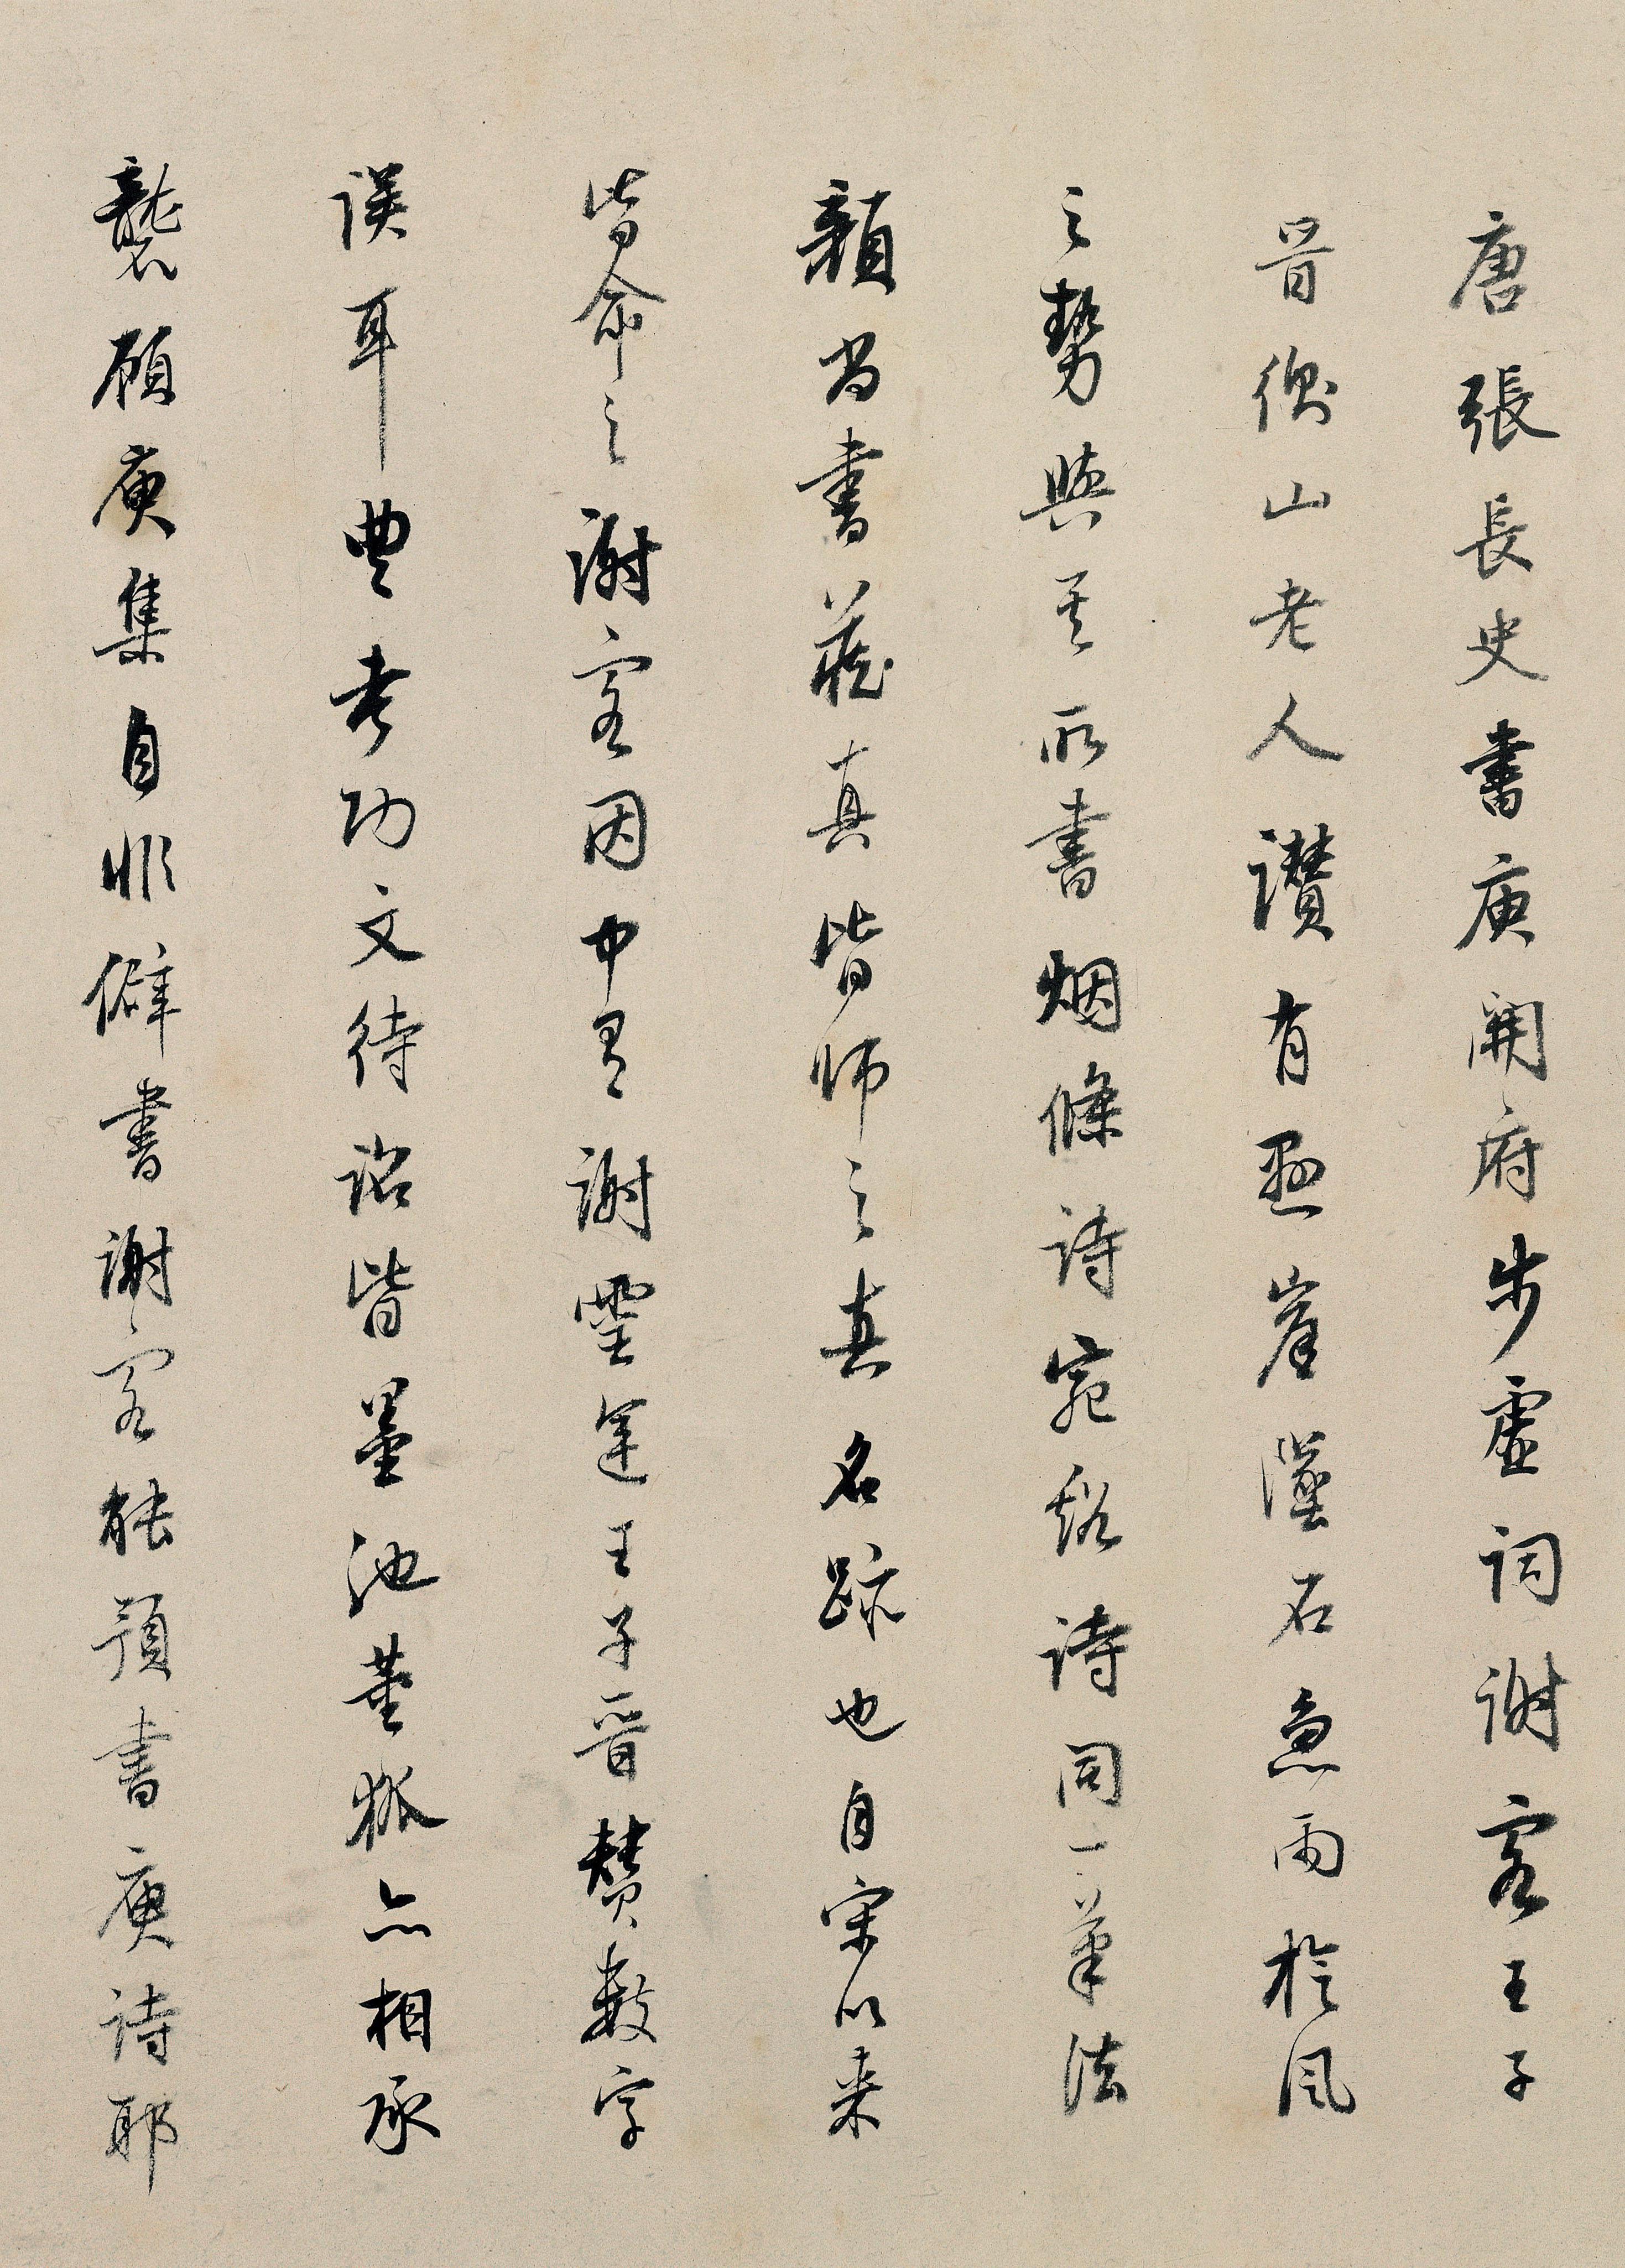 唐張長史書庾開府步虛詞謝客王子
晉衡山老人讚有懸崖墜石急雨旋風
之勢與其所書烟條詩宛谿詩同一筆法
顏尚書藏真皆師之真名跡也自宋以来
皆命之謝客因中有謝靈運王子晉贊數字
誤耳豐考功文待詔皆墨池董狐亦相承
襲顧庾集自非僻書謝客能預書庾詩耶